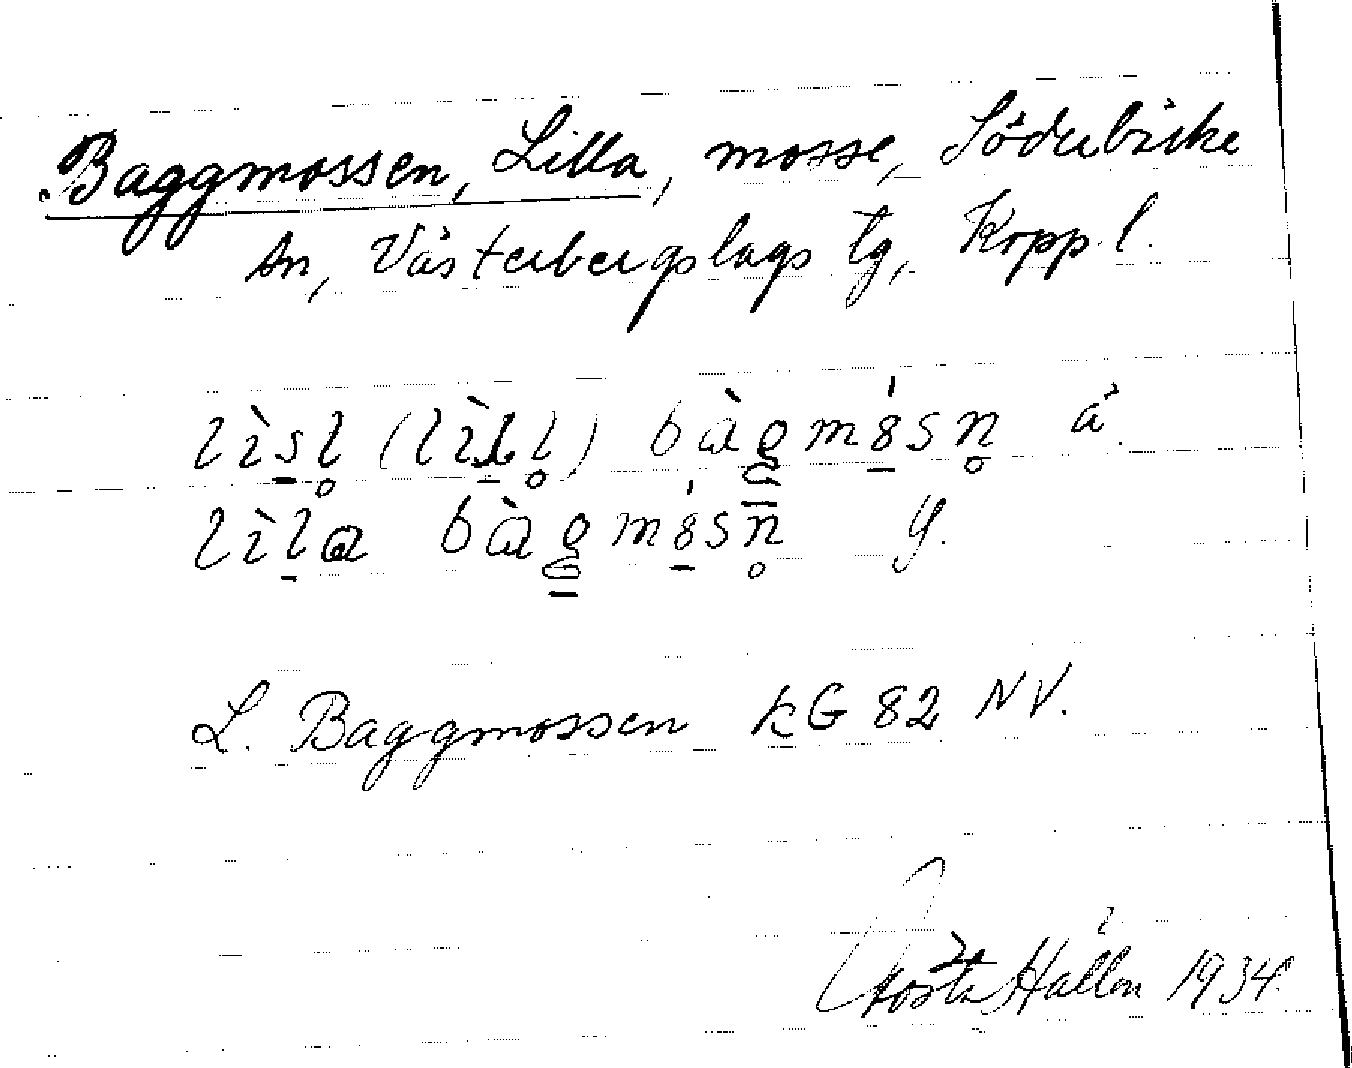 Baggmossen, Lilla, mosse, Söderbärke
sn, Västerbergslags tg, Kopp. l.
lìsl̥ (lìll̥) bàgmósn̥ ä.
lìla bàgmósn̥ y.
L. Baggmossen kG 82 NV.
Gösta Hallén 1934.